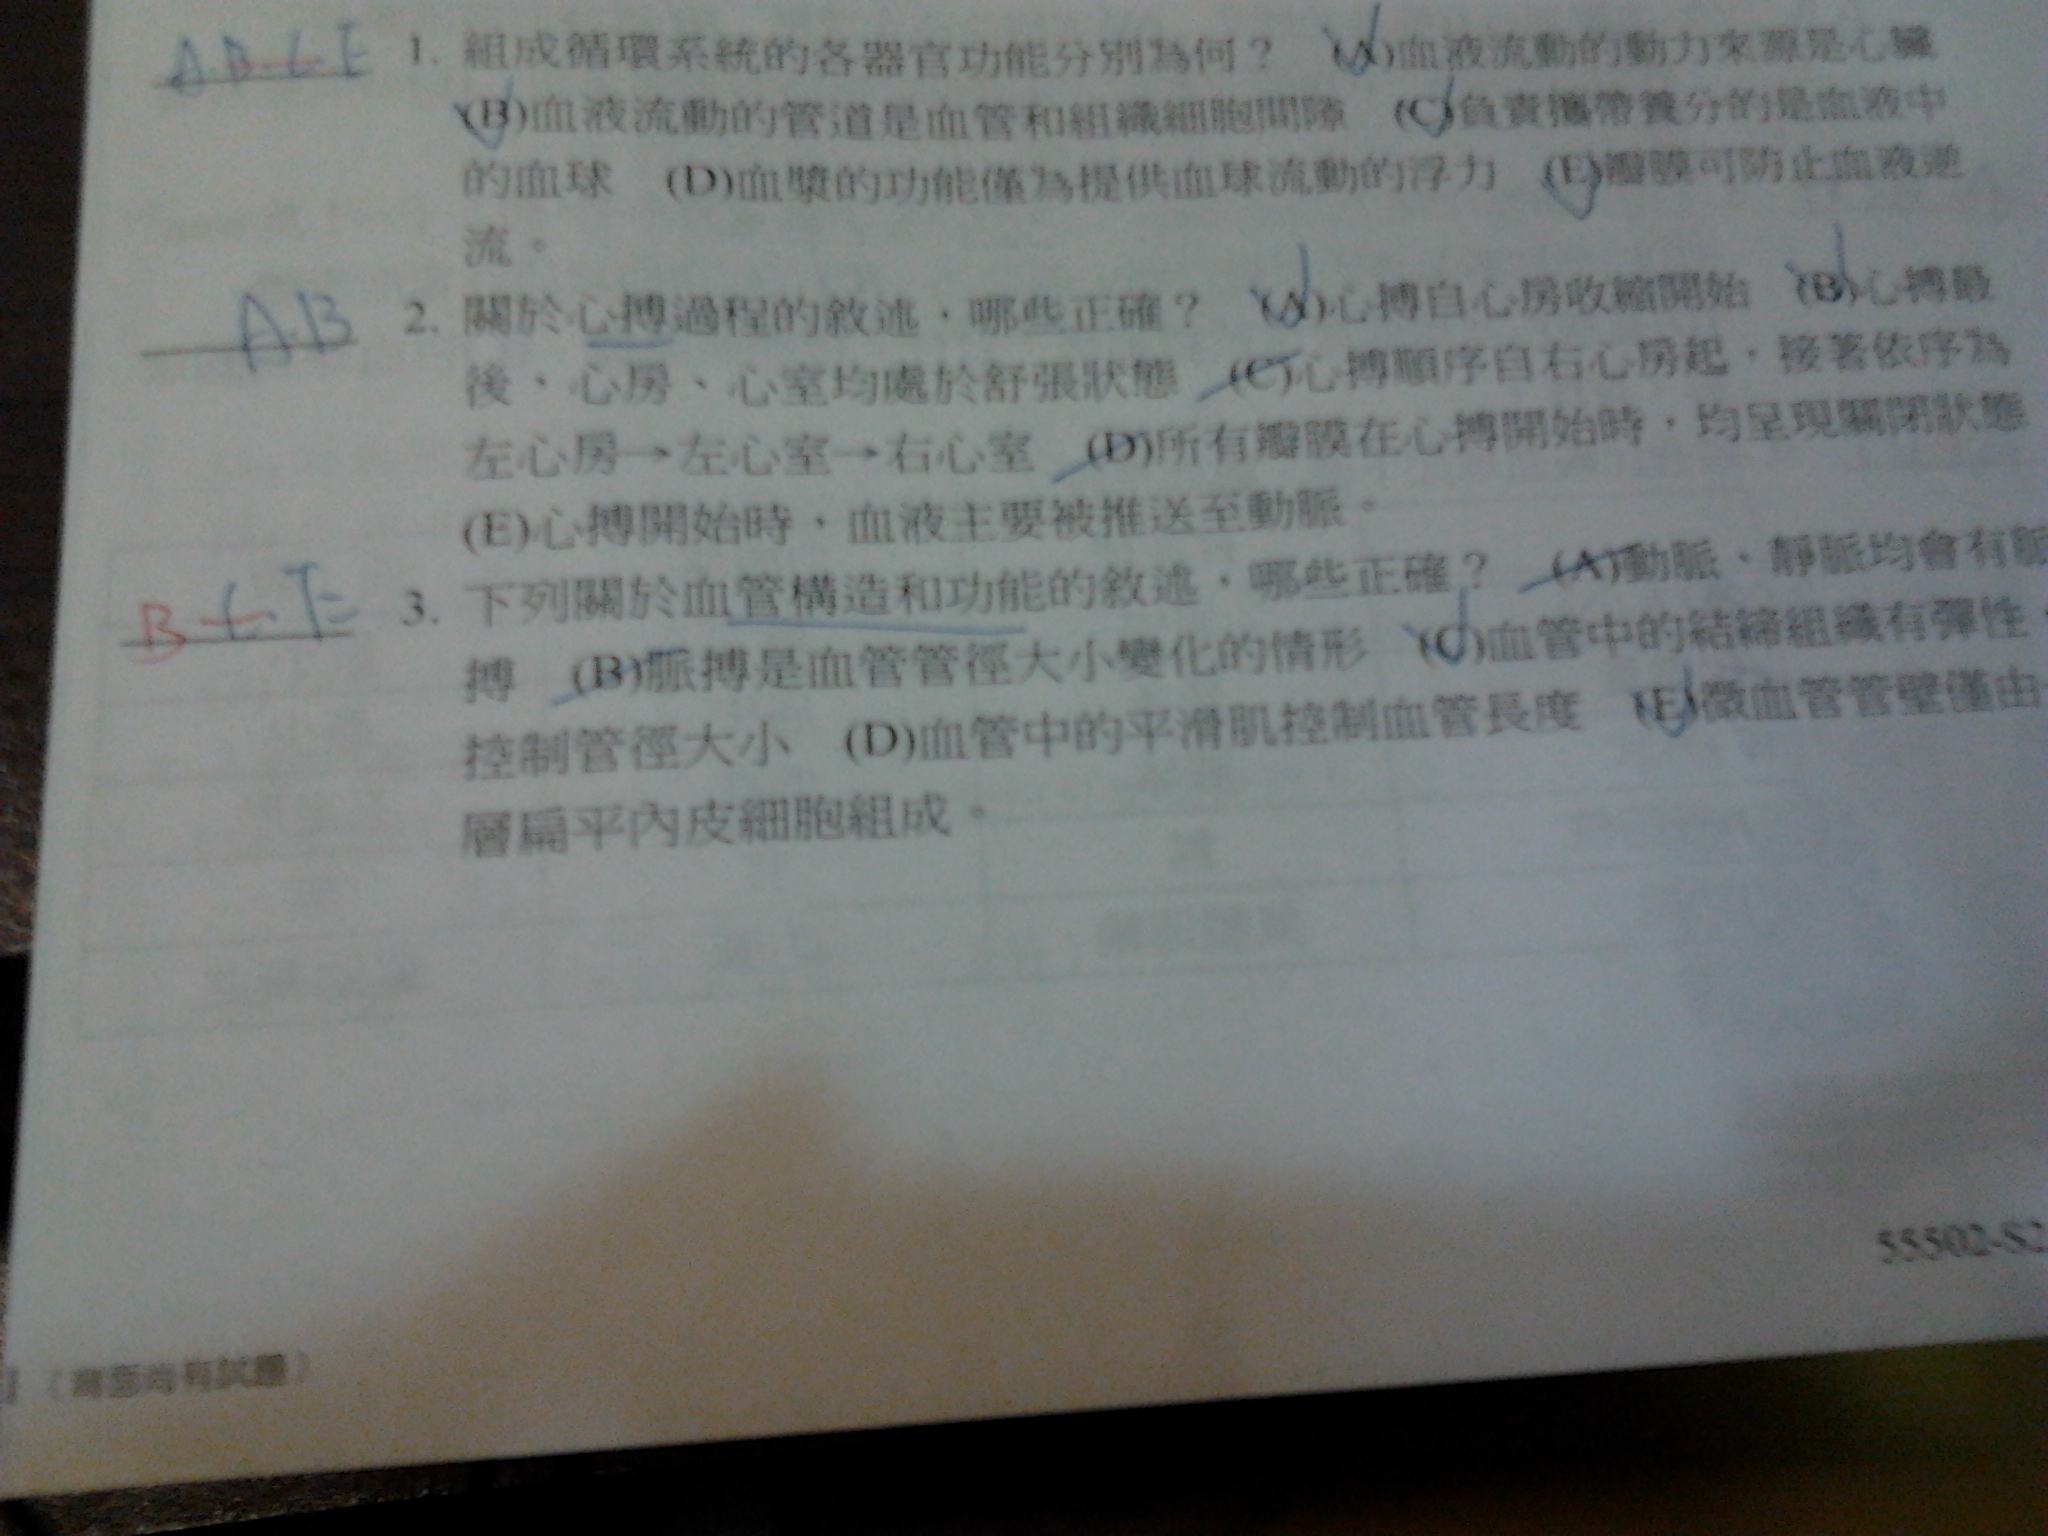 A B C E 1. 組成循環系統的各器官功能分別為何？ (A)血液流動的動力來源是心臟
(B)血液流動的管道是血管和組織細胞間隙 (C)負責攜帶養分的是血液中
的血球 (D)血漿的功能僅為提供血球流動的浮力 (E)瓣膜可防止血液逆
流。
A.B 2. 關於心搏過程的敘述，哪些正確？ (A)心搏自心房收縮開始 (B)心搏最
後，心房、心室均處於舒張狀態 (C)心搏順序自右心房起，接著依序為
左心房→左心室→右心室 (D)所有瓣膜在心搏開始時，均呈現關閉狀態
(E)心搏開始時，血液主要被推送至動脈。
B C. E 3. 下列關於血管構造和功能的敘述，哪些正確？ (A)動脈、靜脈均會有脈
搏 (B)脈搏是血管管徑大小變化的情形 (C)血管中的結締組織有彈性，
控制管徑大小 (D)血管中的平滑肌控制血管長度 (E)微血管管壁僅由
層扁平內皮細胞組成。
55502-S2
（背面尚有試題）